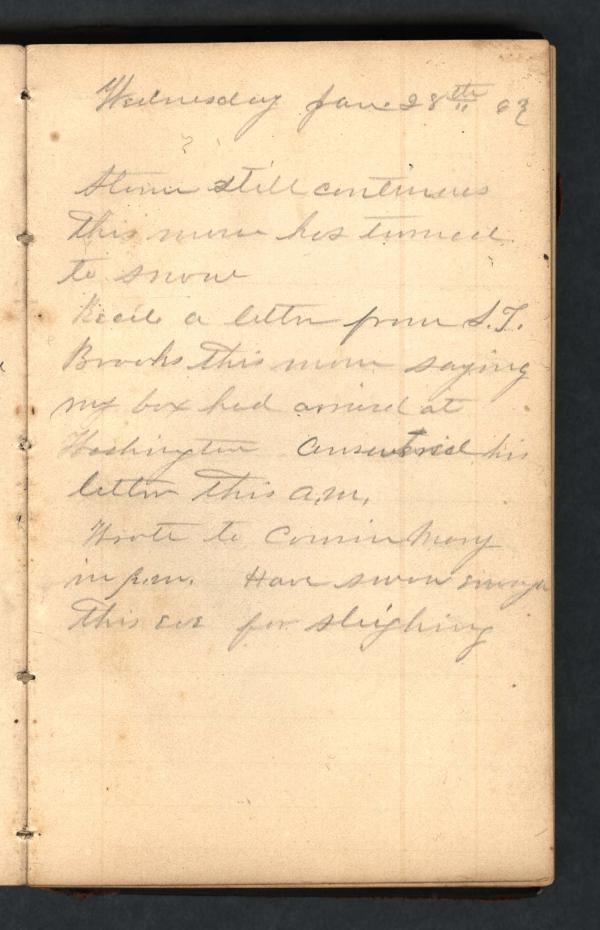 Wednesday Jan. 28th 63
Storm still continues
this morn has turned
to snow
Recd a letter from S.T.
Brooks this morn saying
my box had arrived at
Washington answered his
letter this a.m.
Wrote to Cousin Mary
in p.m. Have snow enough
this eve for sleighing